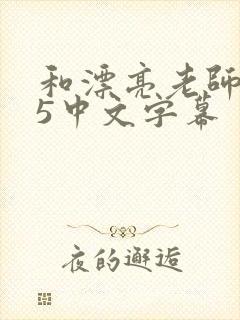 和漂亮老師
5中文字幕
夜的邂逅